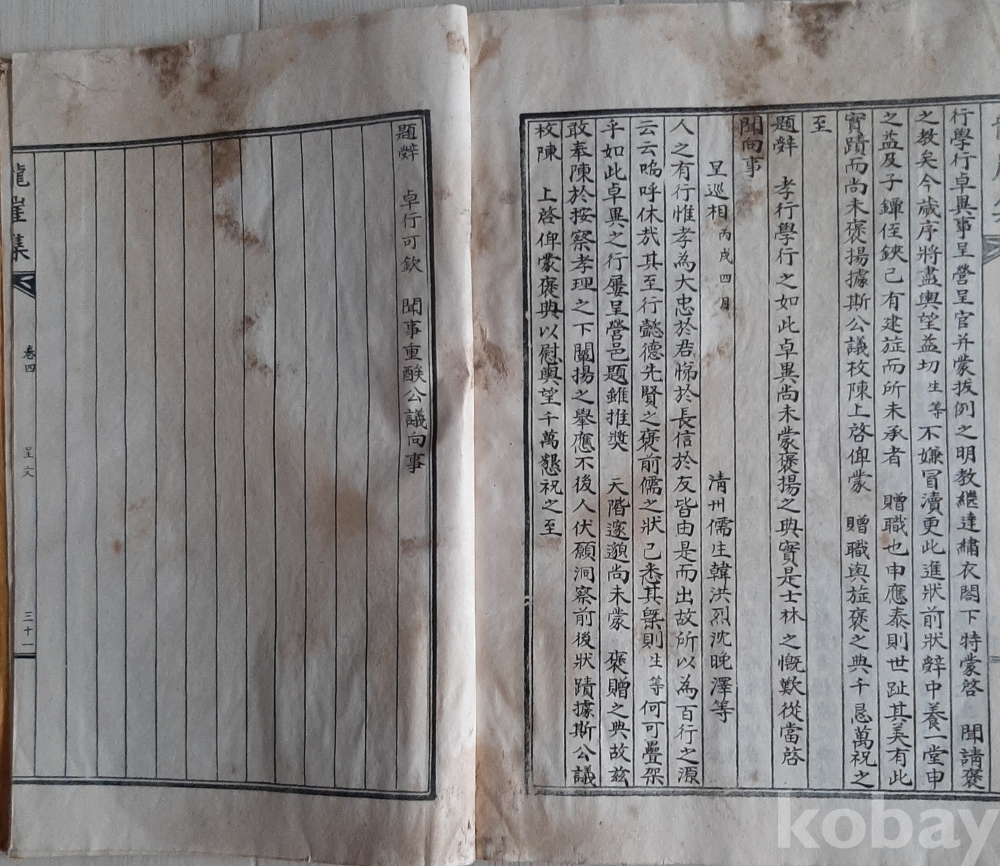 行學行卓異事呈營呈官并蒙拔例之明教繼達繡衣閤下特蒙啓 聞請褒
之教矣今歲序將盡輿望益切生等不嫌冒瀆更此進狀前狀辭中養一堂申
之益及子鏵侄鋏已有建㫌而所未承者 贈職也申應泰則世趾其美有此
實蹟而尚未褒揚據斯公議枚陳上啓俾蒙 贈職與㫌褒之典千恳萬祝之
至
題辭 孝行學行之如此卓異尚未蒙褒揚之典實是士林之慨歎從當啓
聞向事
呈巡相丙戌四月 清州儒生韓洪烈沈晩澤等
人之有行惟孝為大忠於君悌於長信於友皆由是而出故所以為百行之源
云云嗚呼休㦲其至行懿德先賢之褒前儒之狀已悉其槩則生等何可疊架
乎如此卓異之行屢呈營邑題雖推奬 天階邃邈尚未蒙 褒贈之典故玆
敢奉陳於按察孝理之下闡揚之擧應不後人伏願洞察前後狀蹟據斯公議
枚陳 上啓俾蒙褒典以慰輿望千萬懇祝之至
題辭 卓行可欽 聞事重酸公議向事
龍崖集
卷四
呈文
三十一
kobay